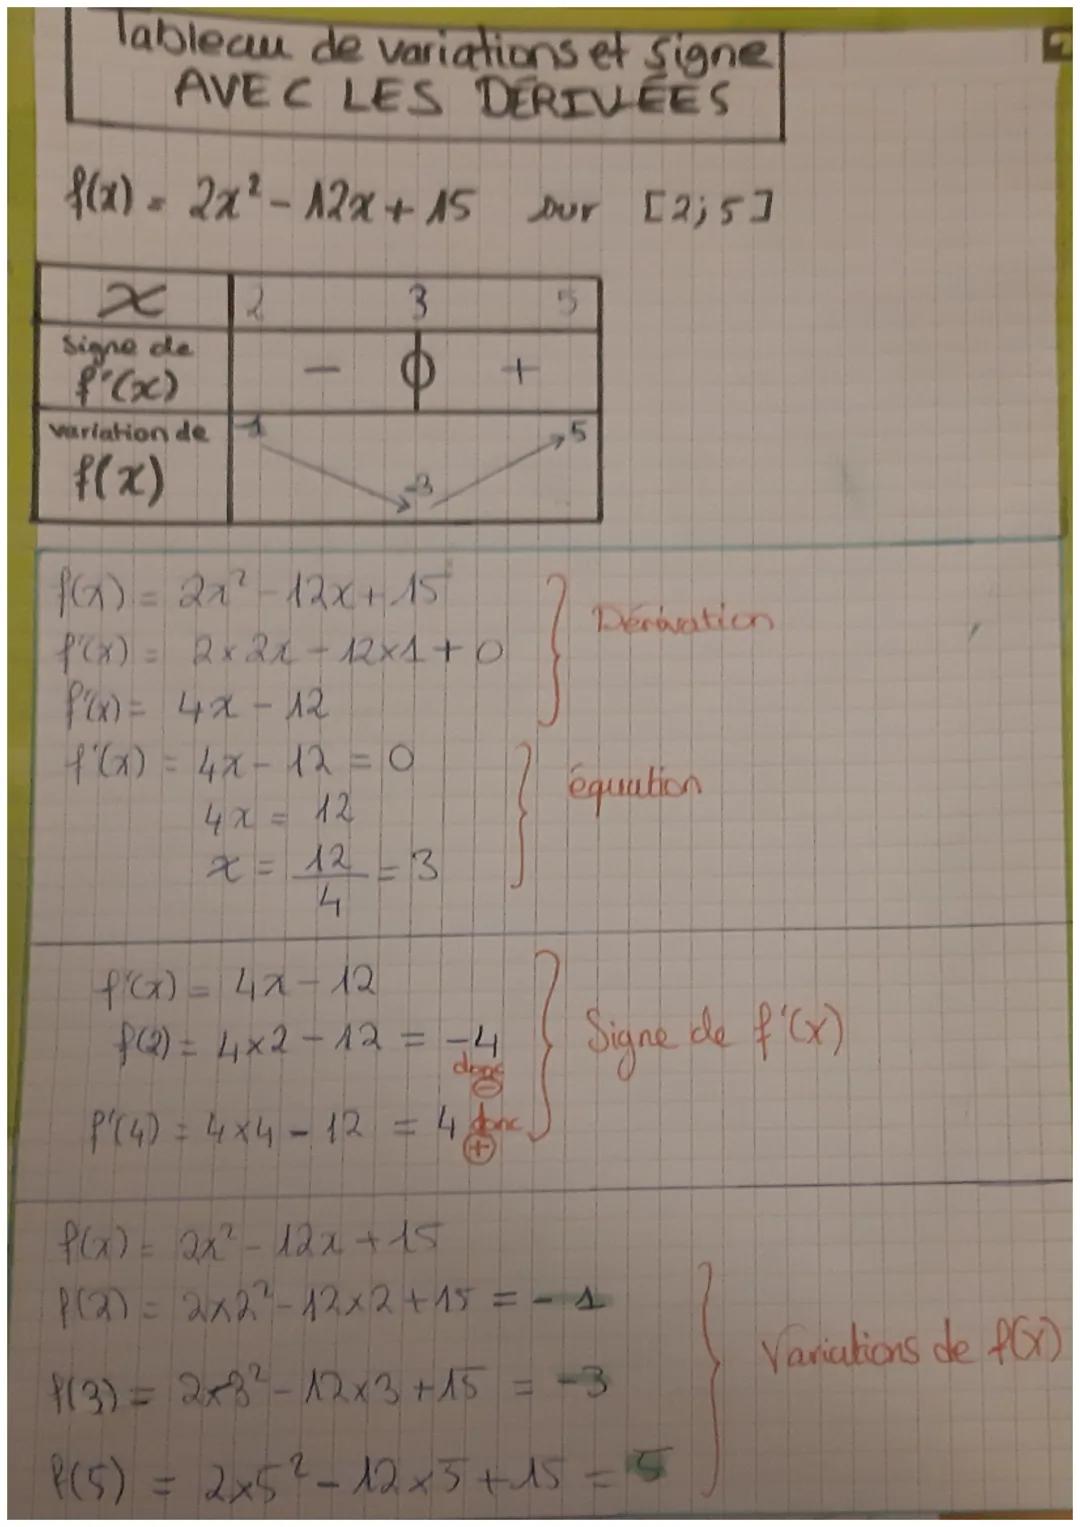 Tableau de variations et signe
AVEC LES DÉRIVÉES
f(x) = 2x² - 12x + 15 sur [2;5]
x 2 3 5
Signe de f'(x) - 0 +
variation de f(x) -1 -3 5
f(x) = 2x² - 12x + 15
f'(x) = 2 × 2x - 12 × 1 + 0
f'(x) = 4x - 12
Dérivation
f'(x) = 4x - 12 = 0
4x = 12
x = 12/4 = 3
équation
f'(x) = 4x - 12
f(2) = 4×2 - 12 = -4 donc ⊖
f'(4) = 4×4 - 12 = 4 donc ⊕
Signe de f'(x)
f(x) = 2x² - 12x + 15
f(2) = 2×2² - 12×2 + 15 = -1
f(3) = 2×3² - 12×3 + 15 = -3
f(5) = 2×5² - 12×5 + 15 = 5
Variations de f(x)